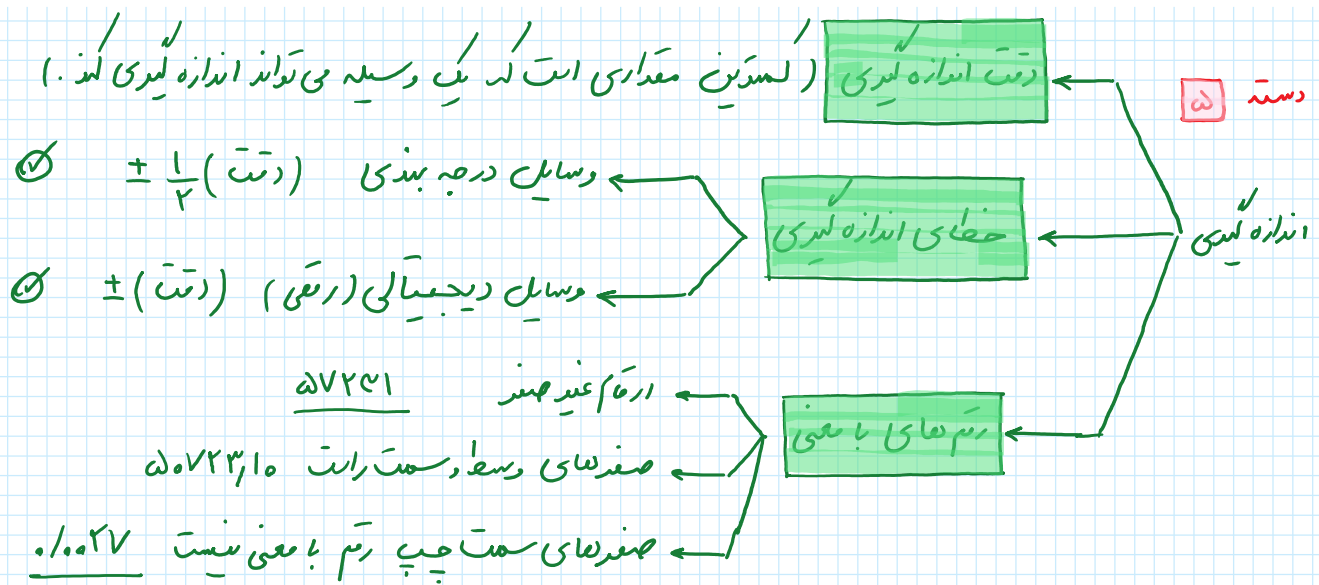 دسته ۵
اندازه گیری
دقت اندازه گیری (کمترین مقداری است که یک وسیله می تواند اندازه گیری کند.)
خطای اندازه گیری
وسایل درجه بندی (دقت) ۱/۲ ±
وسایل دیجیتالی (رقمی) (دقت) ±
رقم های با معنی
ارقام غیر صفر ۵۷۲۳۱
صفرهای وسط و سمت راست ۵۰۷۲۳٫۱۰
صفرهای سمت چپ رقم با معنی نیست ۰/۰۰۲۷